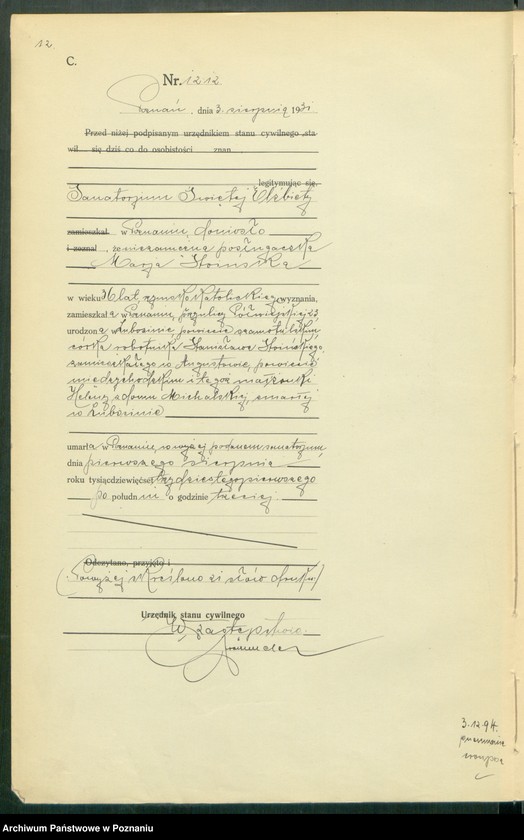 12
C.
Nr. 1212.
Poznań, dnia 3. sierpnia 1931
Przed niżej podpisanym urzędnikiem stanu cywilnego sta
wił się dziś co do osobistości znan
legitymując się.
Sanatorjum Świętej Elżbiety
zamieszkał w Poznaniu, doniosło
i zeznał, że niezamężna posługaczka
Marja Słomińska
w wieku lat, rzymsko katolickiego wyznania,
zamieszkała w Poznaniu, przy ulicy 23,
urodzona w Luboszinie, powiecie szamotulskim,
córka robotnika Stanisława Słomińskiego,
zamieszkałego w Augustowie, powiecie
międzychodzkim i tegoż małżonki
Heleny z domu Michalskiej, zmarłej
w
umarła w Poznaniu, w wyżej podanem sanatorjum,
dnia pierwszego sierpnia
roku tysiącdziewięćset trzydziestego pierwszego
po południu o godzinie trzeciej
Odczytano, przyjęto i
(Powyżej skreślono 21 słów druku)
Urzędnik stanu cywilnego
W zastępstwie
3.12.94.
pneumonia
crouposa
Archiwum Państwowe w Poznaniu